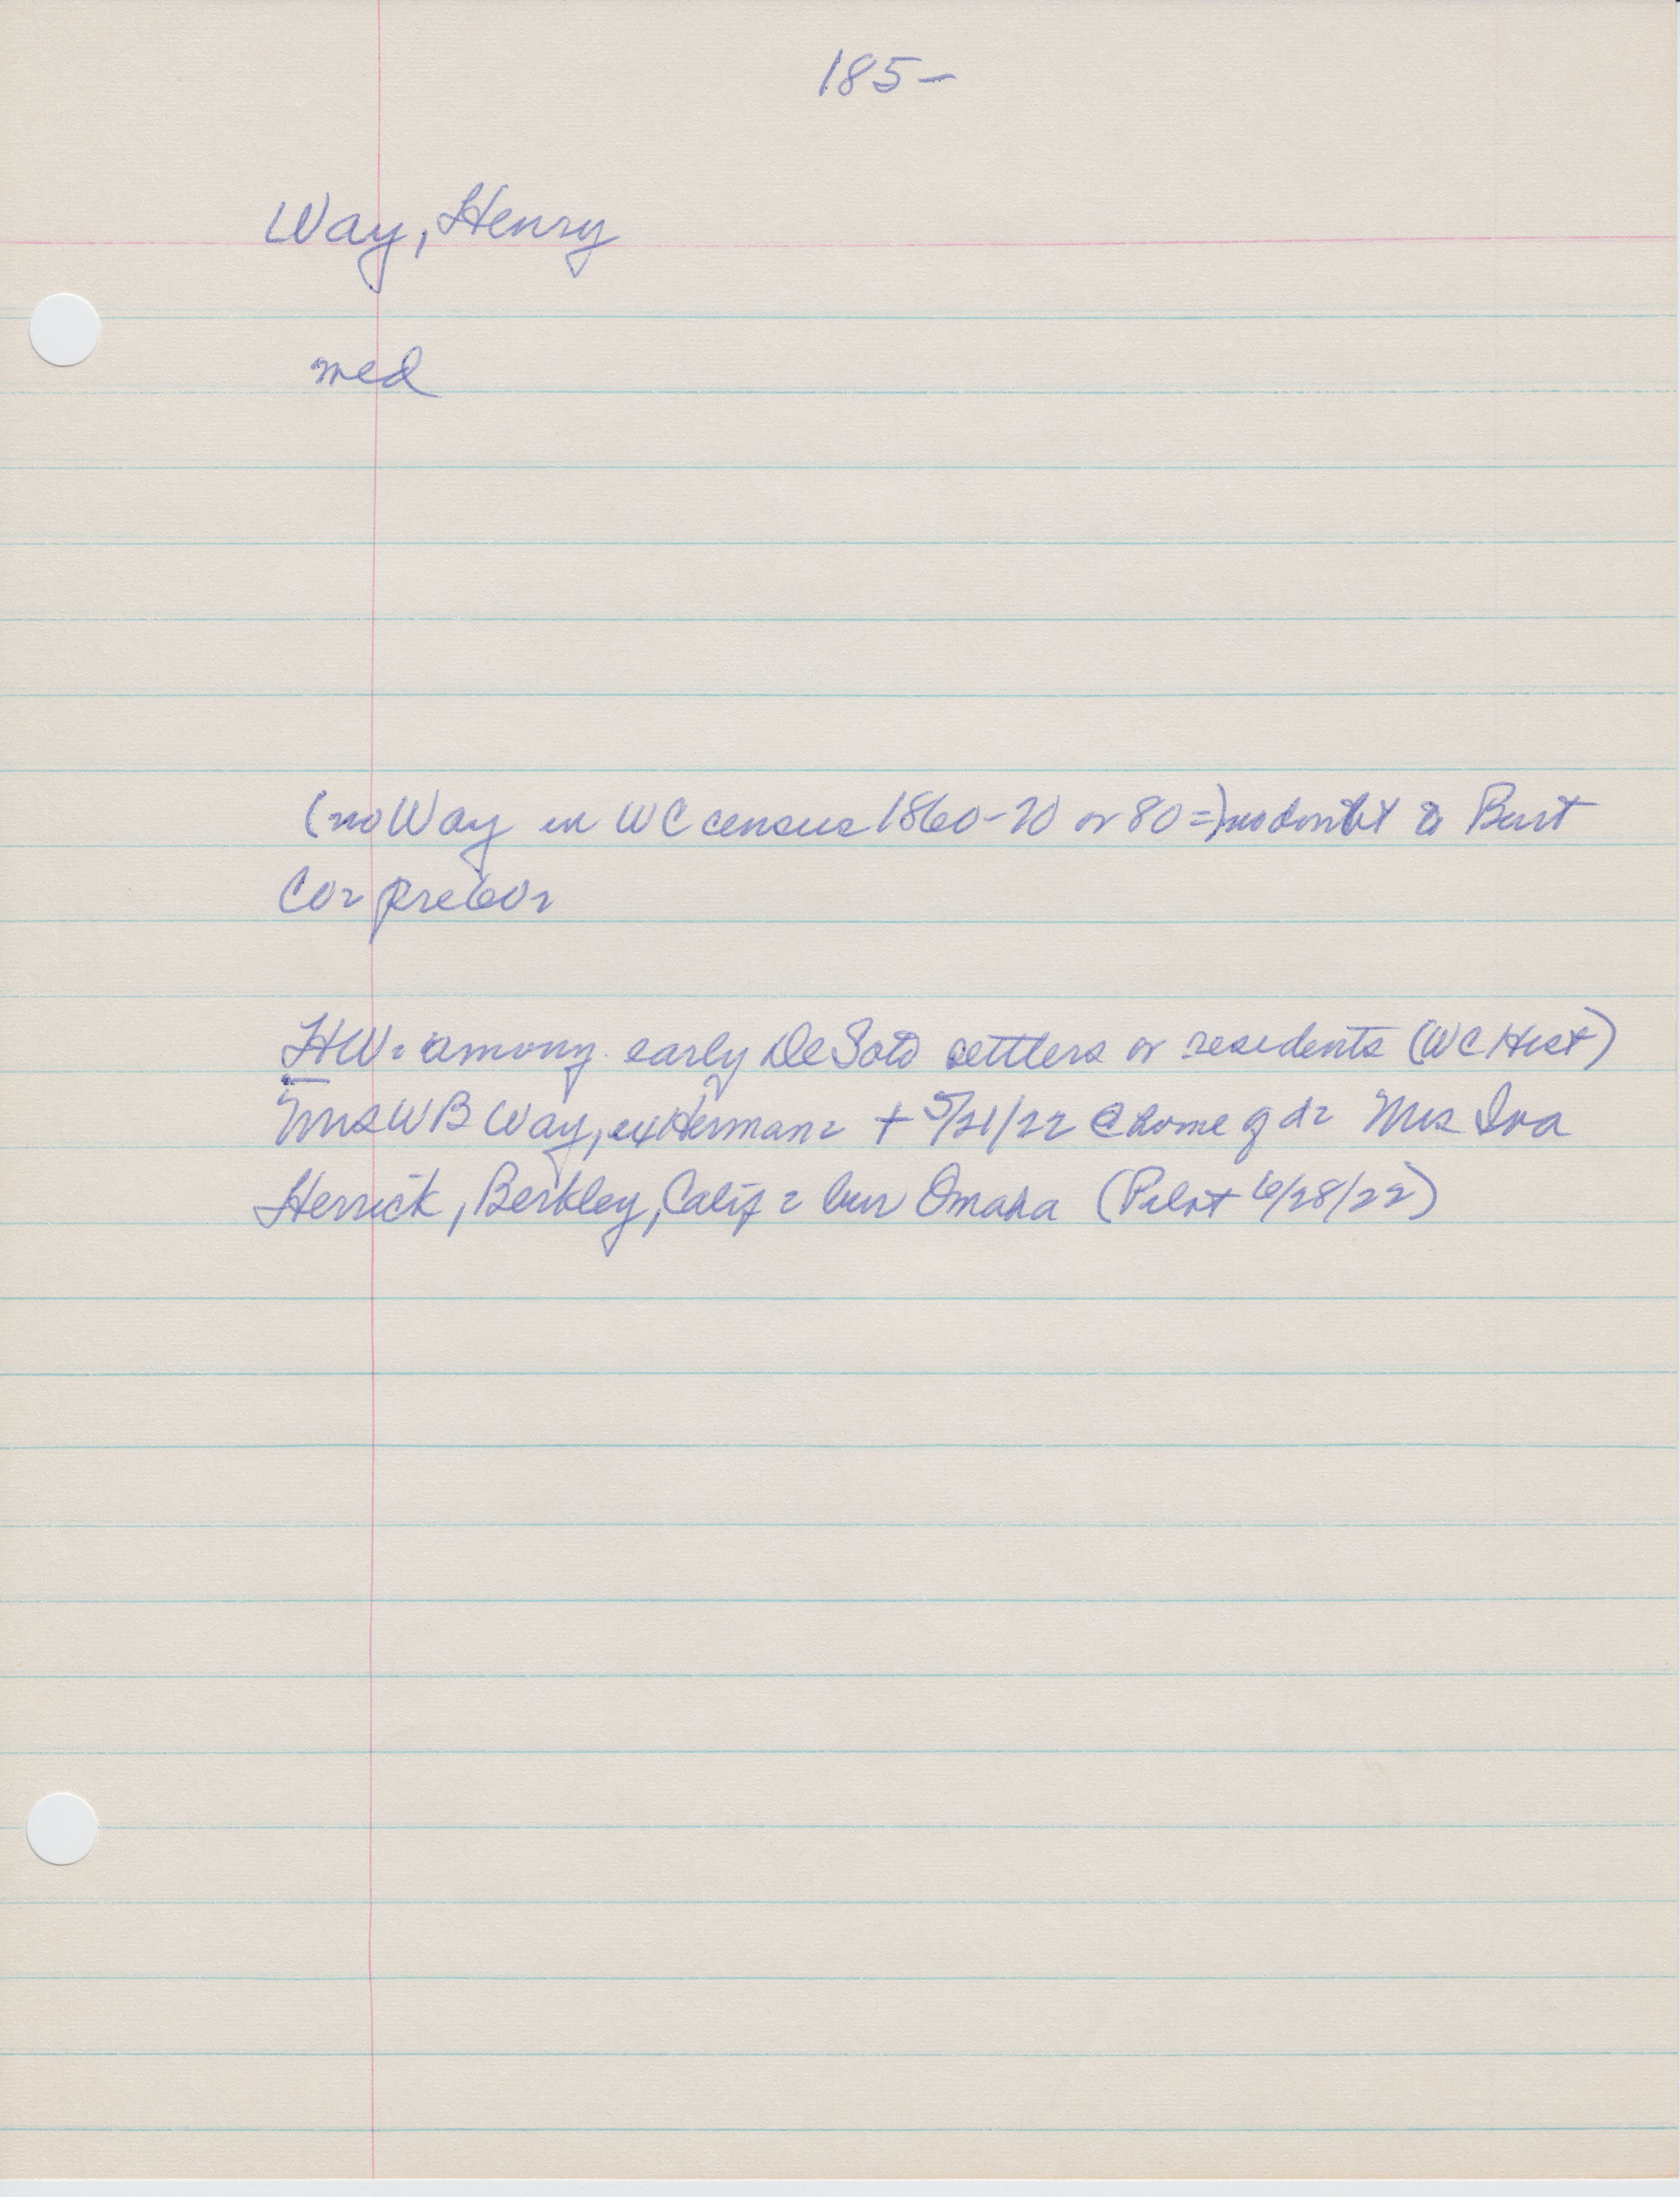 185-
Way, Henry
med
(no Way in WC census 1860-70 or 80=) no doubt a Burt
Co= pre60=
HW= among early DeSoto settlers or residents (WC Hist)
Mrs WB Way, ex Herman= + 5/21/22 @ home of d= Mrs Iva
Herrick, Berkley, Calif= bur Omaha (Pilot 6/28/22)